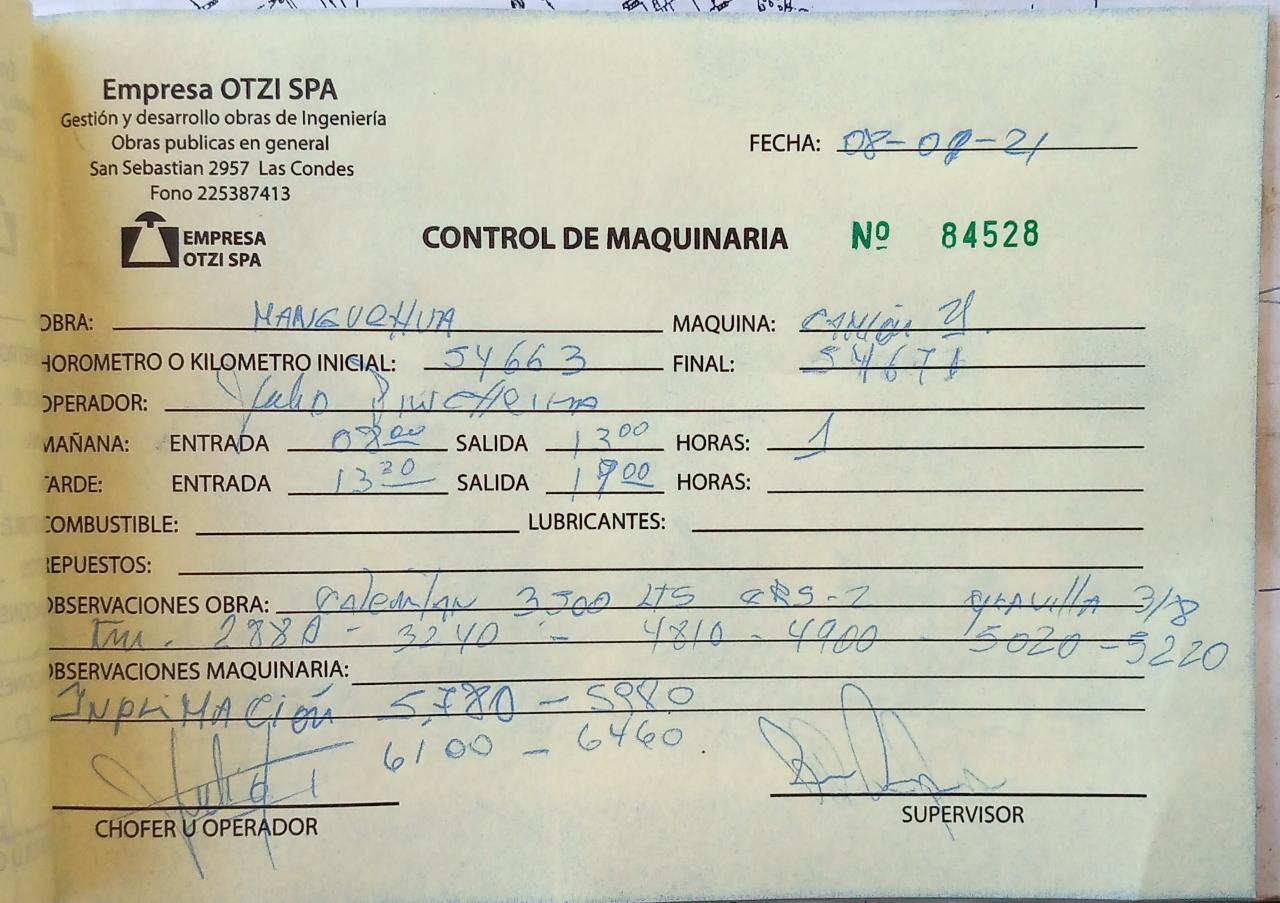 Empresa OTZI SPA
Gestión y desarrollo obras de Ingeniería
Obras publicas en general
San Sebastian 2957 Las Condes
Fono 225387413
FECHA: 08-09-21
EMPRESA
OTZI SPA
CONTROL DE MAQUINARIA Nº 84528
OBRA: MANGUEHUA MAQUINA: CAMIÓN
HOROMETRO O KILOMETRO INICIAL: 54663 FINAL: 54671
OPERADOR: Julio
MAÑANA: ENTRADA 0800 SALIDA 1300 HORAS: 1
TARDE: ENTRADA 1330 SALIDA 1900 HORAS:
COMBUSTIBLE: LUBRICANTES:
REPUESTOS:
OBSERVACIONES OBRA: 3500 LTS CRS-2 GRAVILLA 3/8
Km. 2880 - 3240 - 4810 - 4900 - 5020 - 5220
OBSERVACIONES MAQUINARIA:
INPRIMACIÓN 5.780 - 5980
6100 - 6460.
CHOFER U OPERADOR
SUPERVISOR